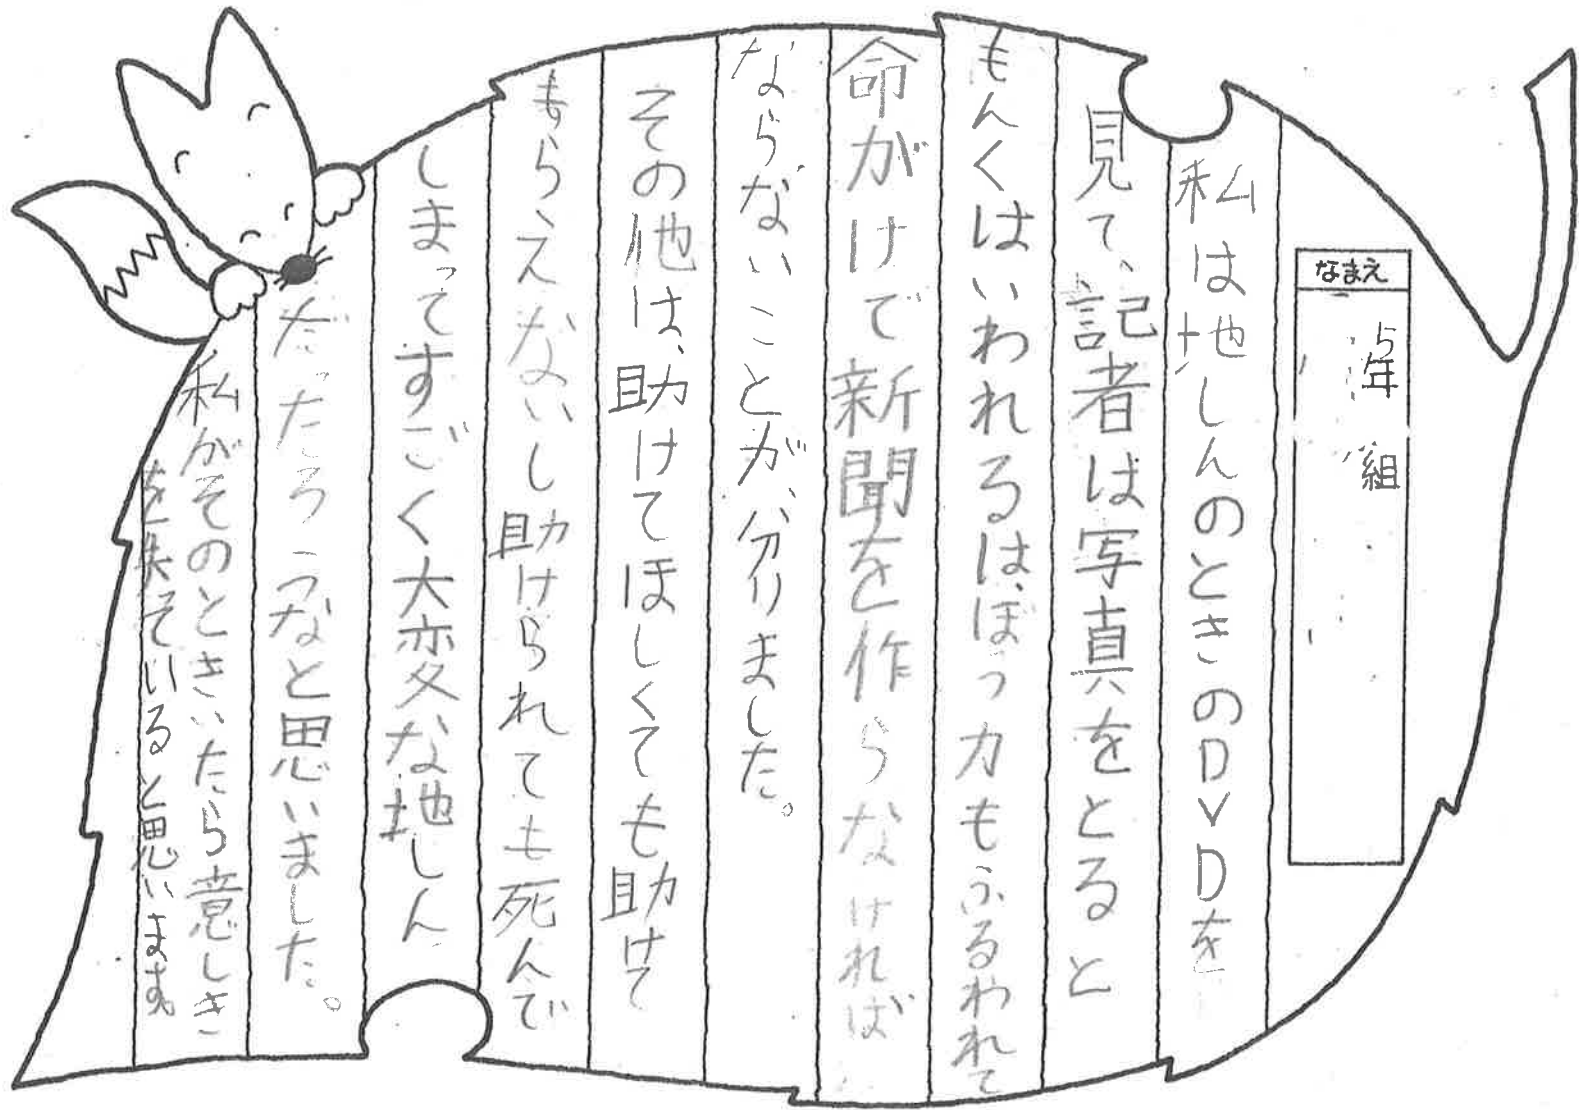 なまえ
5年 組
私は地しんのときのDVDを
見て、記者は写真をとると
もんくはいわれるは、ぼう力もふるわれて
命がけで新聞を作らなければ
ならないことが、分りました。
その他は、助けてほしくても助けて
もらえないし助けられても死んで
しまってすごく大変な地しん
だったろうなと思いました。
私がそのときいたら意しき
を失そいると思います。